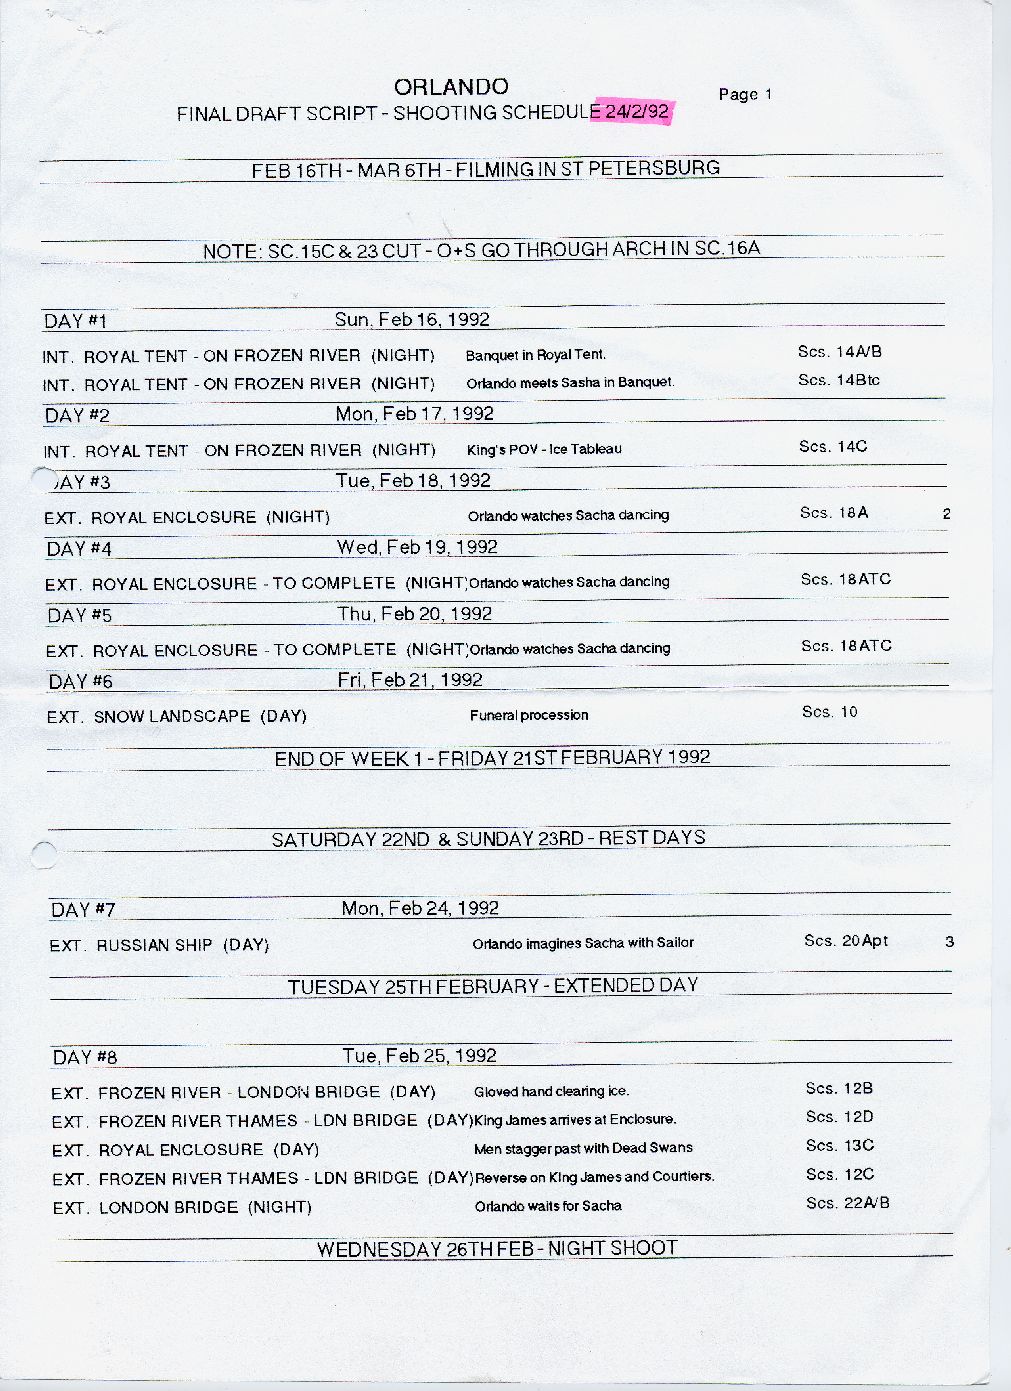 ORLANDO
Page 1
FINAL DRAFT SCRIPT - SHOOTING SCHEDULE 24/2/92
FEB 16TH - MAR 6TH - FILMING IN ST PETERSBURG
NOTE: SC.15C & 23 CUT - O+S GO THROUGH ARCH IN SC.16A
DAY #1 Sun, Feb 16, 1992
INT. ROYAL TENT - ON FROZEN RIVER (NIGHT) Banquet in Royal Tent. Scs. 14A/B
INT. ROYAL TENT - ON FROZEN RIVER (NIGHT) Orlando meets Sasha in Banquet. Scs. 14Btc
DAY #2 Mon, Feb 17, 1992
INT. ROYAL TENT ON FROZEN RIVER (NIGHT) King's POV - Ice Tableau Scs. 14C
DAY #3 Tue, Feb 18, 1992
EXT. ROYAL ENCLOSURE (NIGHT) Orlando watches Sacha dancing Scs. 18A 2
DAY #4 Wed, Feb 19, 1992
EXT. ROYAL ENCLOSURE - TO COMPLETE (NIGHT) Orlando watches Sacha dancing Scs. 18ATC
DAY #5 Thu, Feb 20, 1992
EXT. ROYAL ENCLOSURE - TO COMPLETE (NIGHT) Orlando watches Sacha dancing Scs. 18ATC
DAY #6 Fri, Feb 21, 1992
EXT. SNOW LANDSCAPE (DAY) Funeral procession Scs. 10
END OF WEEK 1 - FRIDAY 21ST FEBRUARY 1992
SATURDAY 22ND & SUNDAY 23RD - REST DAYS
DAY #7 Mon, Feb 24, 1992
EXT. RUSSIAN SHIP (DAY) Orlando imagines Sacha with Sailor Scs. 20Apt 3
TUESDAY 25TH FEBRUARY - EXTENDED DAY
DAY #8 Tue, Feb 25, 1992
EXT. FROZEN RIVER - LONDON BRIDGE (DAY) Gloved hand clearing ice. Scs. 12B
EXT. FROZEN RIVER THAMES - LDN BRIDGE (DAY) King James arrives at Enclosure. Scs. 12D
EXT. ROYAL ENCLOSURE (DAY) Men stagger past with Dead Swans Scs. 13C
EXT. FROZEN RIVER THAMES - LDN BRIDGE (DAY) Reverse on King James and Courtiers. Scs. 12C
EXT. LONDON BRIDGE (NIGHT) Orlando waits for Sacha Scs. 22A/B
WEDNESDAY 26TH FEB - NIGHT SHOOT